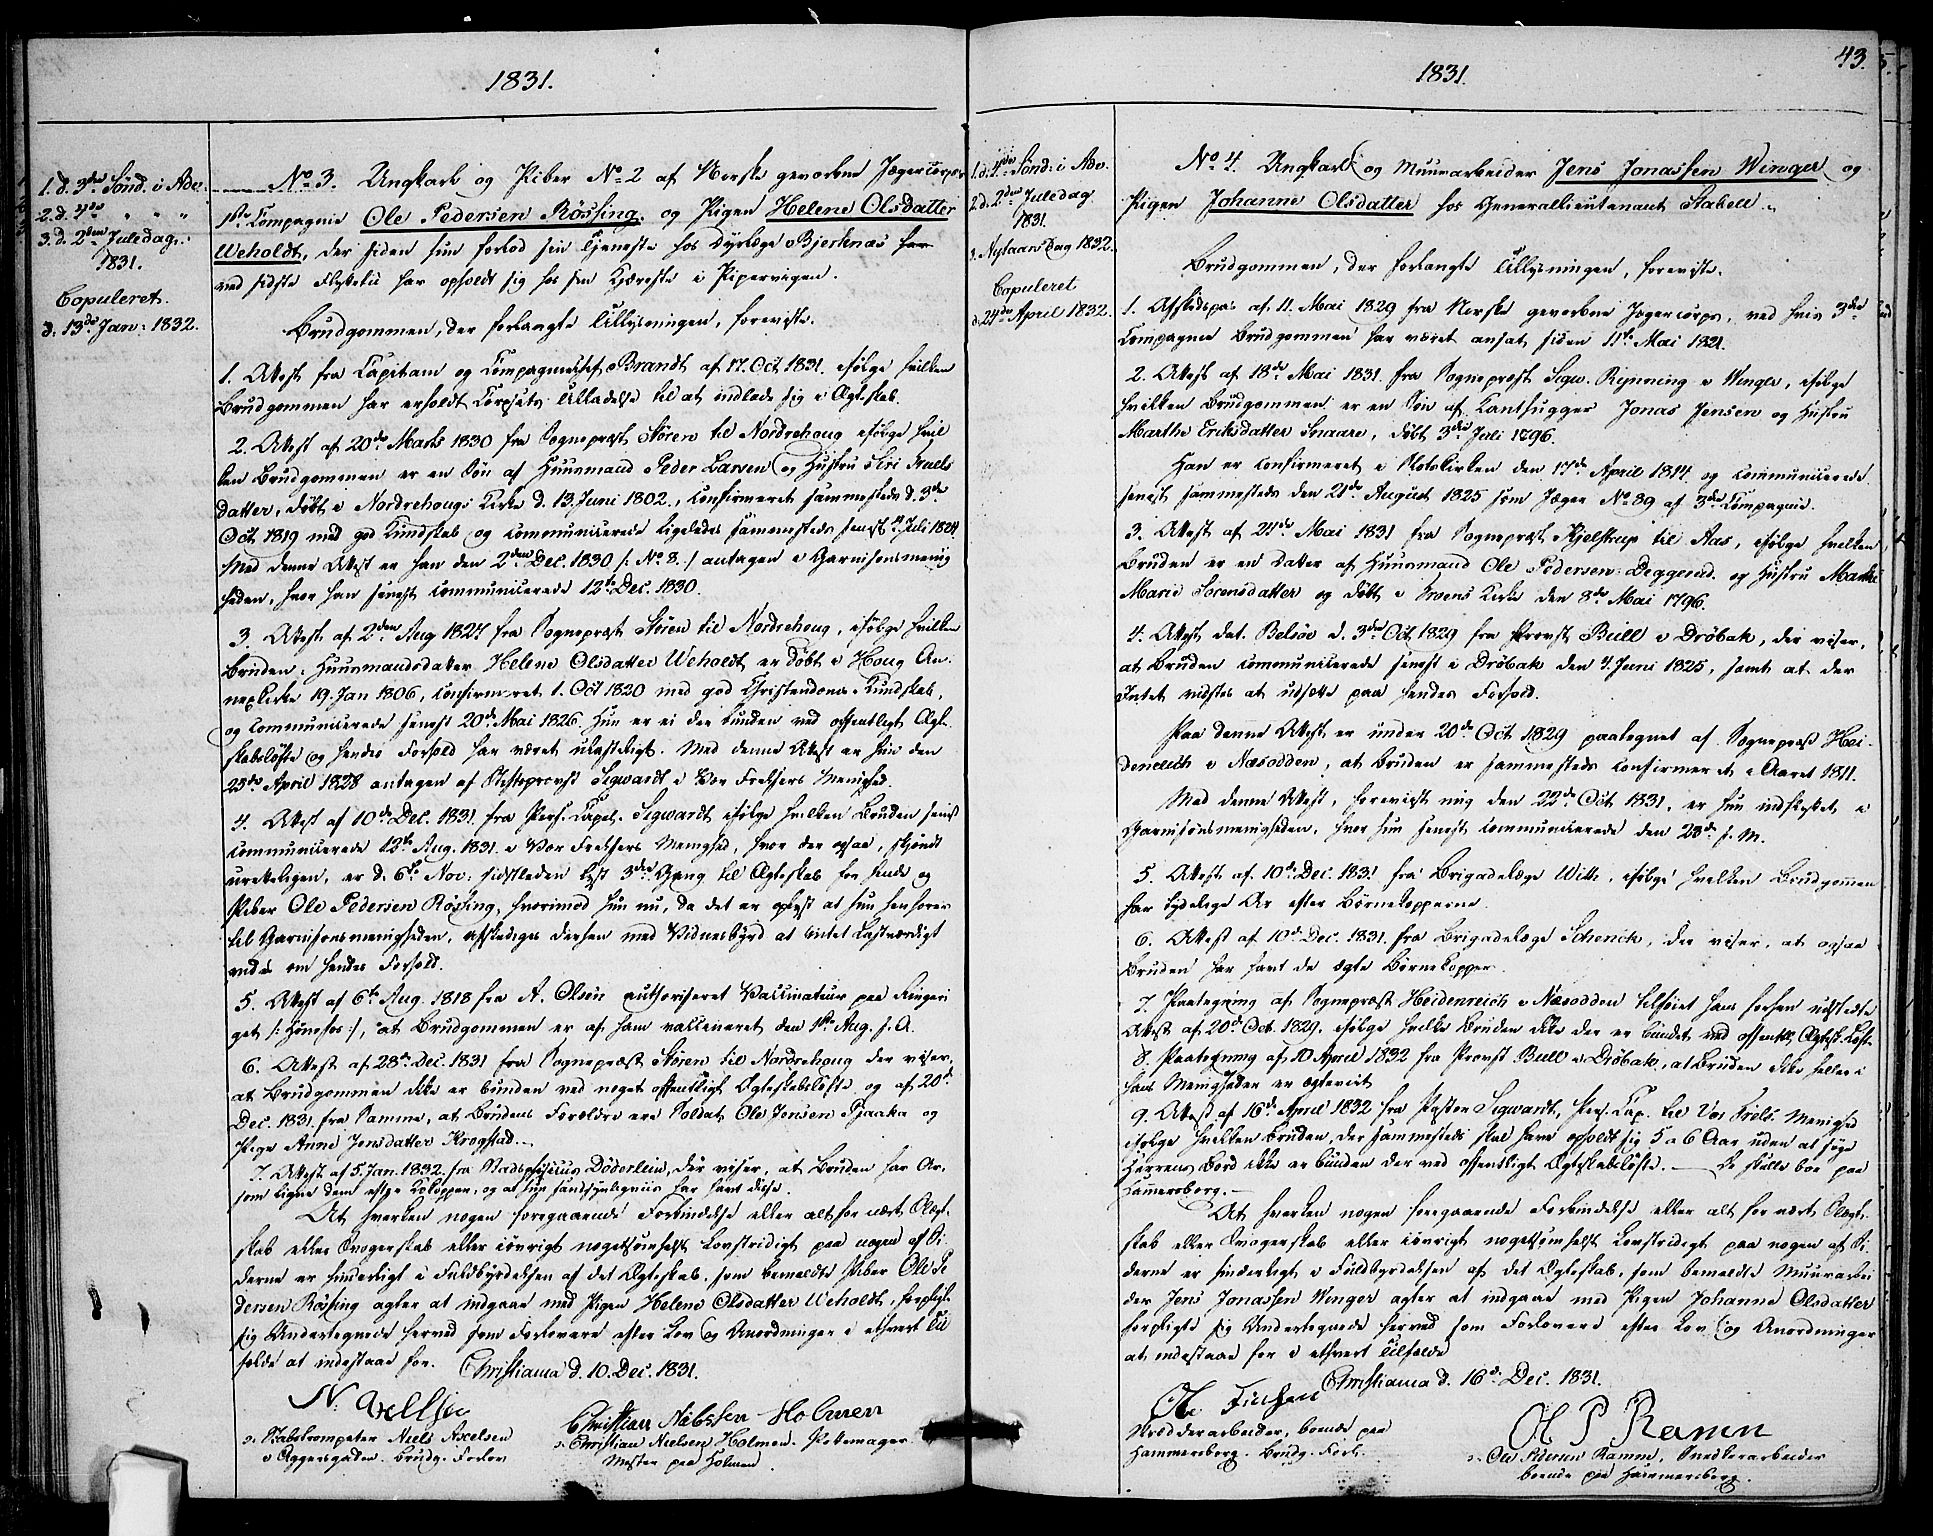 1831.
1. d. 3die Sønd. i Adv.
2. d. 4de " " "
3. d. 2den Juledag
1831.
Copuleret
d. 13de Jan: 1832.
No 3. Ungkarl og Piber No 2 af Norske gevorbne Jægercorps
1ste Compagnie Ole Pedersen Røssing og Pigen Helene Olsdatter
Weholdt, der siden hun forlod sin Tjeneste hos Dyrlæge Bjerknæs har
ved sidste Flyttetid har opholdt sig hos sin Kjæreste i Pipervigen.
Brudgommen, der forlangte Tillysningen, foreviste.
1. Attest fra Capitain og Compagniechef Brandt af 17. Oct. 1831. ifølge hvilken
Brudgommen har erholdt Corpsets Tilladelse til at indlade sig i Ægteskab.
2. Attest af 20de Marts 1830 fra Sognepræst Støren til Nordrehoug ifølge hvil
ken Brudgommen er en Søn af Huusmand Peder Larsen og Hustru Siri Truels
datter, døbt i Nordrehougs Kirke d. 13. Juni 1802, confirmeret sammesteds d. 3die
Oct. 1819 med god Kundskab og communicerede ligeledes sammesteds senest 4. Juli 1824.
Med denne Attest er han den 2den Dec. 1830 /: No 8. :/ antagen i Garnisonsmenig
heden, hvor han senest communicerede 12te Dec. 1830.
3. Attest af 2den Aug 1827 fra Sognepræst Støren til Nordrehoug, ifølge hvilken
Bruden: Huusmandsdatter Helene Olsdatter Weholdt er døbt i Houg An-
nexkirke 19. Jan 1806, confirmeret 1. Oct 1820 med god Christendoms-Kundskab,
og communicerede senest 20de Mai 1826. Hun er ei der bunden ved offentligt Ægte
skabsløfte og hendes Forhold har været ulasteligt. Med denne Attest er hun den
23de April 1828 antagen af Stiftsprovst Sigwardt i Vor Frelsers Menighed.
4. Attest af 10de Dec. 1831. fra Pers. Capel. Sigwardt ifølge hvilken Bruden senest
communicerede 12te Aug. 1831. i Vor Frelsers Menighed, hvor der ogsaa, skjøndt
urettelig, er d. 6te Nov: sidstleden lyst 3die Gang til Ægteskab for hende og
Piber Ole Pedersen Røssing, hvorimod hun nu, da det er oplyst at hun henhører
til Garnisonsmenigheden, afskediges derhen med Vidnesbyrd at Intet lastværdigt
vides om hendes Forhold.
5. Attest af 6te Aug. 1818 fra A. Olsen authoriseret Vaccinateur paa Ringeri
get /: Hønefos :/, at Brudgommen er af ham vaccineret den 1ste Aug. s. A.
6. Attest af 28de Dec. 1831 fra Sognepræst Støren til Nordrehoug der viser,
at Brudgommen ikke er bunden ved noget offentligt Ægteskabsløfte og af 20de
Dec. 1831. fra Samme, at Brudens Forældre ere Soldat Ole Jensen Pjaaka og
Pige Anne Jensdatter Krogstad.
7. Attest af 5. Jan. 1832. fra Stadsphysicus Döderlein, der viser, at Bruden har Ar,
som ligne dem efter Kokopper, og at hun sandsynligviis har havt disse.
At hverken nogen foregaaende Forbindelse eller alt for nært Slægt-
skab eller Svogerskab eller iøvrigt nogetsomhelst Lovstridigt paa nogen af Si
derne er hinderligt i Fuldbyrdelsen af det Ægteskab, som bemeldte Piber Ole Pe
dersen Røssing agter at indgaae med Pigen Helene Olsdatter Weholdt, forpligte
sig Undertegnede herved som Forlovere efter Lov og Anordninger i ethvert Til
fælde at indestaae for. Christiania d. 10. Dec. 1831.
N. Axelsen
Christian Nilssen Holmen
o: Stabstrompeter Niels Axelsen
i Aggersgaden. Brudg. Forlov.
o: Christian Nielsen Holmen. Pottemager
Mester paa Holmen.
1831.
43.
1. d. 4de Sønd. i Adv.
2. d. 2den Juledag
1831.
3. Nytaarsdag 1832.
Copuleret
d. 24de April 1832.
No 4. Ungkarl og Muurarbeider Jens Jonassen Winger og
Pigen Johanne Olsdatter hos Generallieutenant Stabell.
Brudgommen, der forlangte Tillysningen, foreviste.
1. Afskedspas af 11. Mai 1829 fra Norske gevorbne Jægercorps, ved hvis 3die
Compagnie Brudgommen har været ansat siden 11te Mai 1821.
2. Attest af 18de Mai 1831. fra Sognepræst Sigw. Rynning i Winger, ifølge
hvilken Brudgommen er en Søn af Tanthugger Jonas Jensen og Hustru
Marthe Eriksdatter Snaare, døbt 3die Juli 1796.
Han er confirmeret i Slotskirken den 17de April 1814 og communicerede
senest sammesteds den 21de August 1825 som Jæger No 89 af 3die Compagnie.
3. Attest af 21de Mai 1831 fra Sognepræst Kjelstrup til Aas, ifølge hvilken
Bruden er en Datter af Huusmand Ole Pedersen Deggerud og Hustru Marthe
Marie Sørensdatter og døbt i Kroens Kirke den 8de Mai 1796.
4. Attest dat. Belsøe d. 3die Oct. 1829 fra Provst Bull i Drøbak, der viser,
at Bruden communicerede senest i Drøbak den 7. Juni 1825, samt at der
Intet vidstes at udsætte paa hendes Forhold.
Paa denne Attest er under 20de Oct 1829 paategnet af Sognepræst Hei-
denreich i Næsodden, at Bruden er sammesteds confirmeret i Aaret 1811.
Med denne Attest, forevist mig den 22de Oct 1831, er hun indskrevet i
Garnisonsmenigheden, hvor hun senest communicerede den 23de s. M.
5. Attest af 10de Dec. 1831 fra Brigadelæge Witte, ifølge hvilken Brudgommen
har tydelige Ar efter Børnekopperne.
6. Attest af 10de Dec. 1831. fra Brigadelæge Schenck, der viser, at ogsaa
Bruden har havt de ægte Børnekopper.
7. Paategning af Sognepræst Heidenreich i Næsodden tilføiet hans forhen udstedte
Attest af 20de Oct. 1829. ifølge hvilke Bruden ikke der er bundet ved offentl. Ægtesk. Løft.
8. Paategning af 10 April 1832 fra Provst Bull i Drøbak, at Bruden ikke heller i
hans Menigheder er ægteviet
9. Attest af 16de April 1832 fra Pastor Sigwardt, Pers. Cap. til Vor Frels. Menighed
ifølge hvilken Bruden, der sammesteds skal have opholdt sig 5 a 6 Aar uden at søge
Herrens Bord ikke er bunden der ved offentligt Ægteskabsløfte. — De skulle boe paa
Hammersborg.
At hverken nogen foregaaende Forbindelse eller alt for nært Slægt-
skab eller Svogerskab eller iøvrigt nogetsomhelst Lovstridigt paa nogen af Si-
derne er hinderligt i Fuldbyrdelsen af det Ægteskab, som bemeldte Muurarbei
der Jens Jonassen Winger agter at indgaae med Pigen Johanne Olsdatter
forpligte sig Undertegnede herved som Forlovere efter Lov og Anordninger
at indestaae for i ethvert Tilfælde
Christiania d. 16de Dec. 1831.
Ole
O P Ramm
arbeider, boende paa
Hammersborg. Brudg. Forl.
o: Ole Pedersen Ramm, Snedkerarbeider
boende paa Hammersborg.